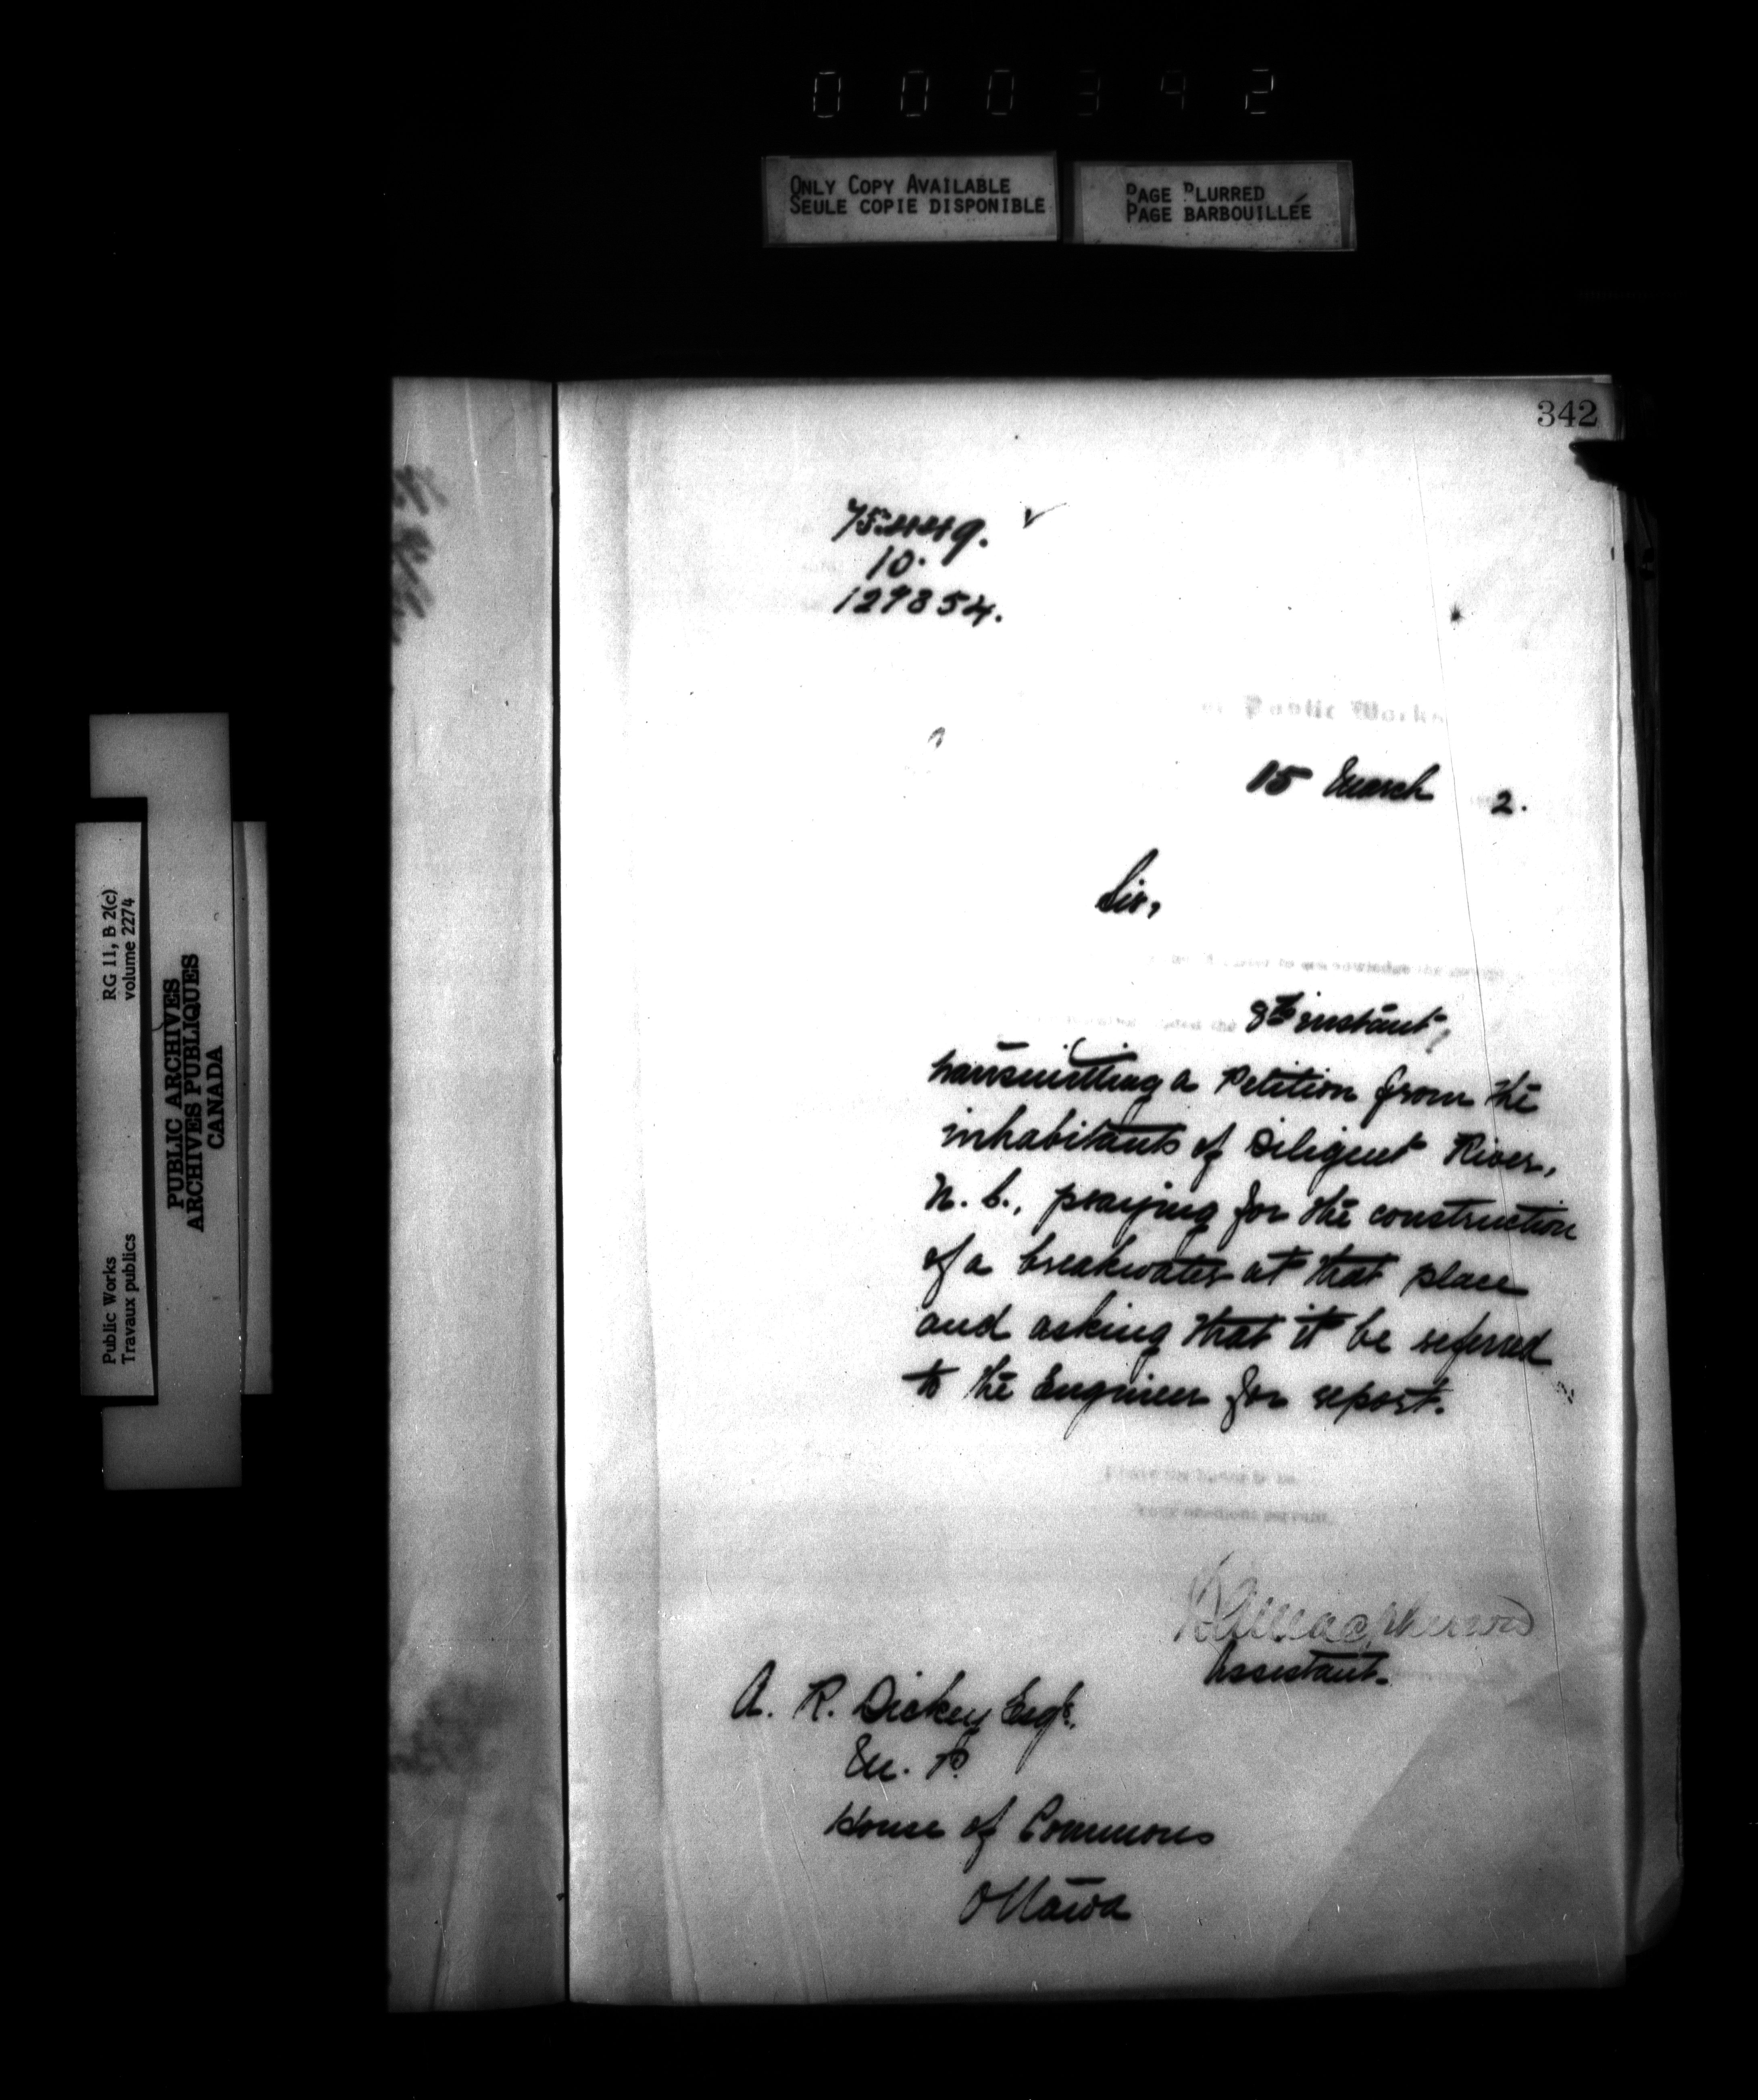 000342
ONLY COPY AVAILABLE
SEULE COPIE DISPONIBLE
PAGE BLURRED
PAGE BARBOUILLÉE
342
75449.
10.
129854.
Public Works
15 March 2.
Sir,
8th instant,
transmitting a Petition from the
inhabitants of Diligent River,
N. S., praying for the construction
of a breakwater at that place
and asking that it be referred
to the Engineer for report.
I have the honor to be
Your obedient servant,
Assistant.
A. R. Dickey Esqr.
M. P.
House of Commons
Ottawa
RG 11, B 2(c)
volume 2274
Public Works
Travaux publics
PUBLIC ARCHIVES
ARCHIVES PUBLIQUES
CANADA